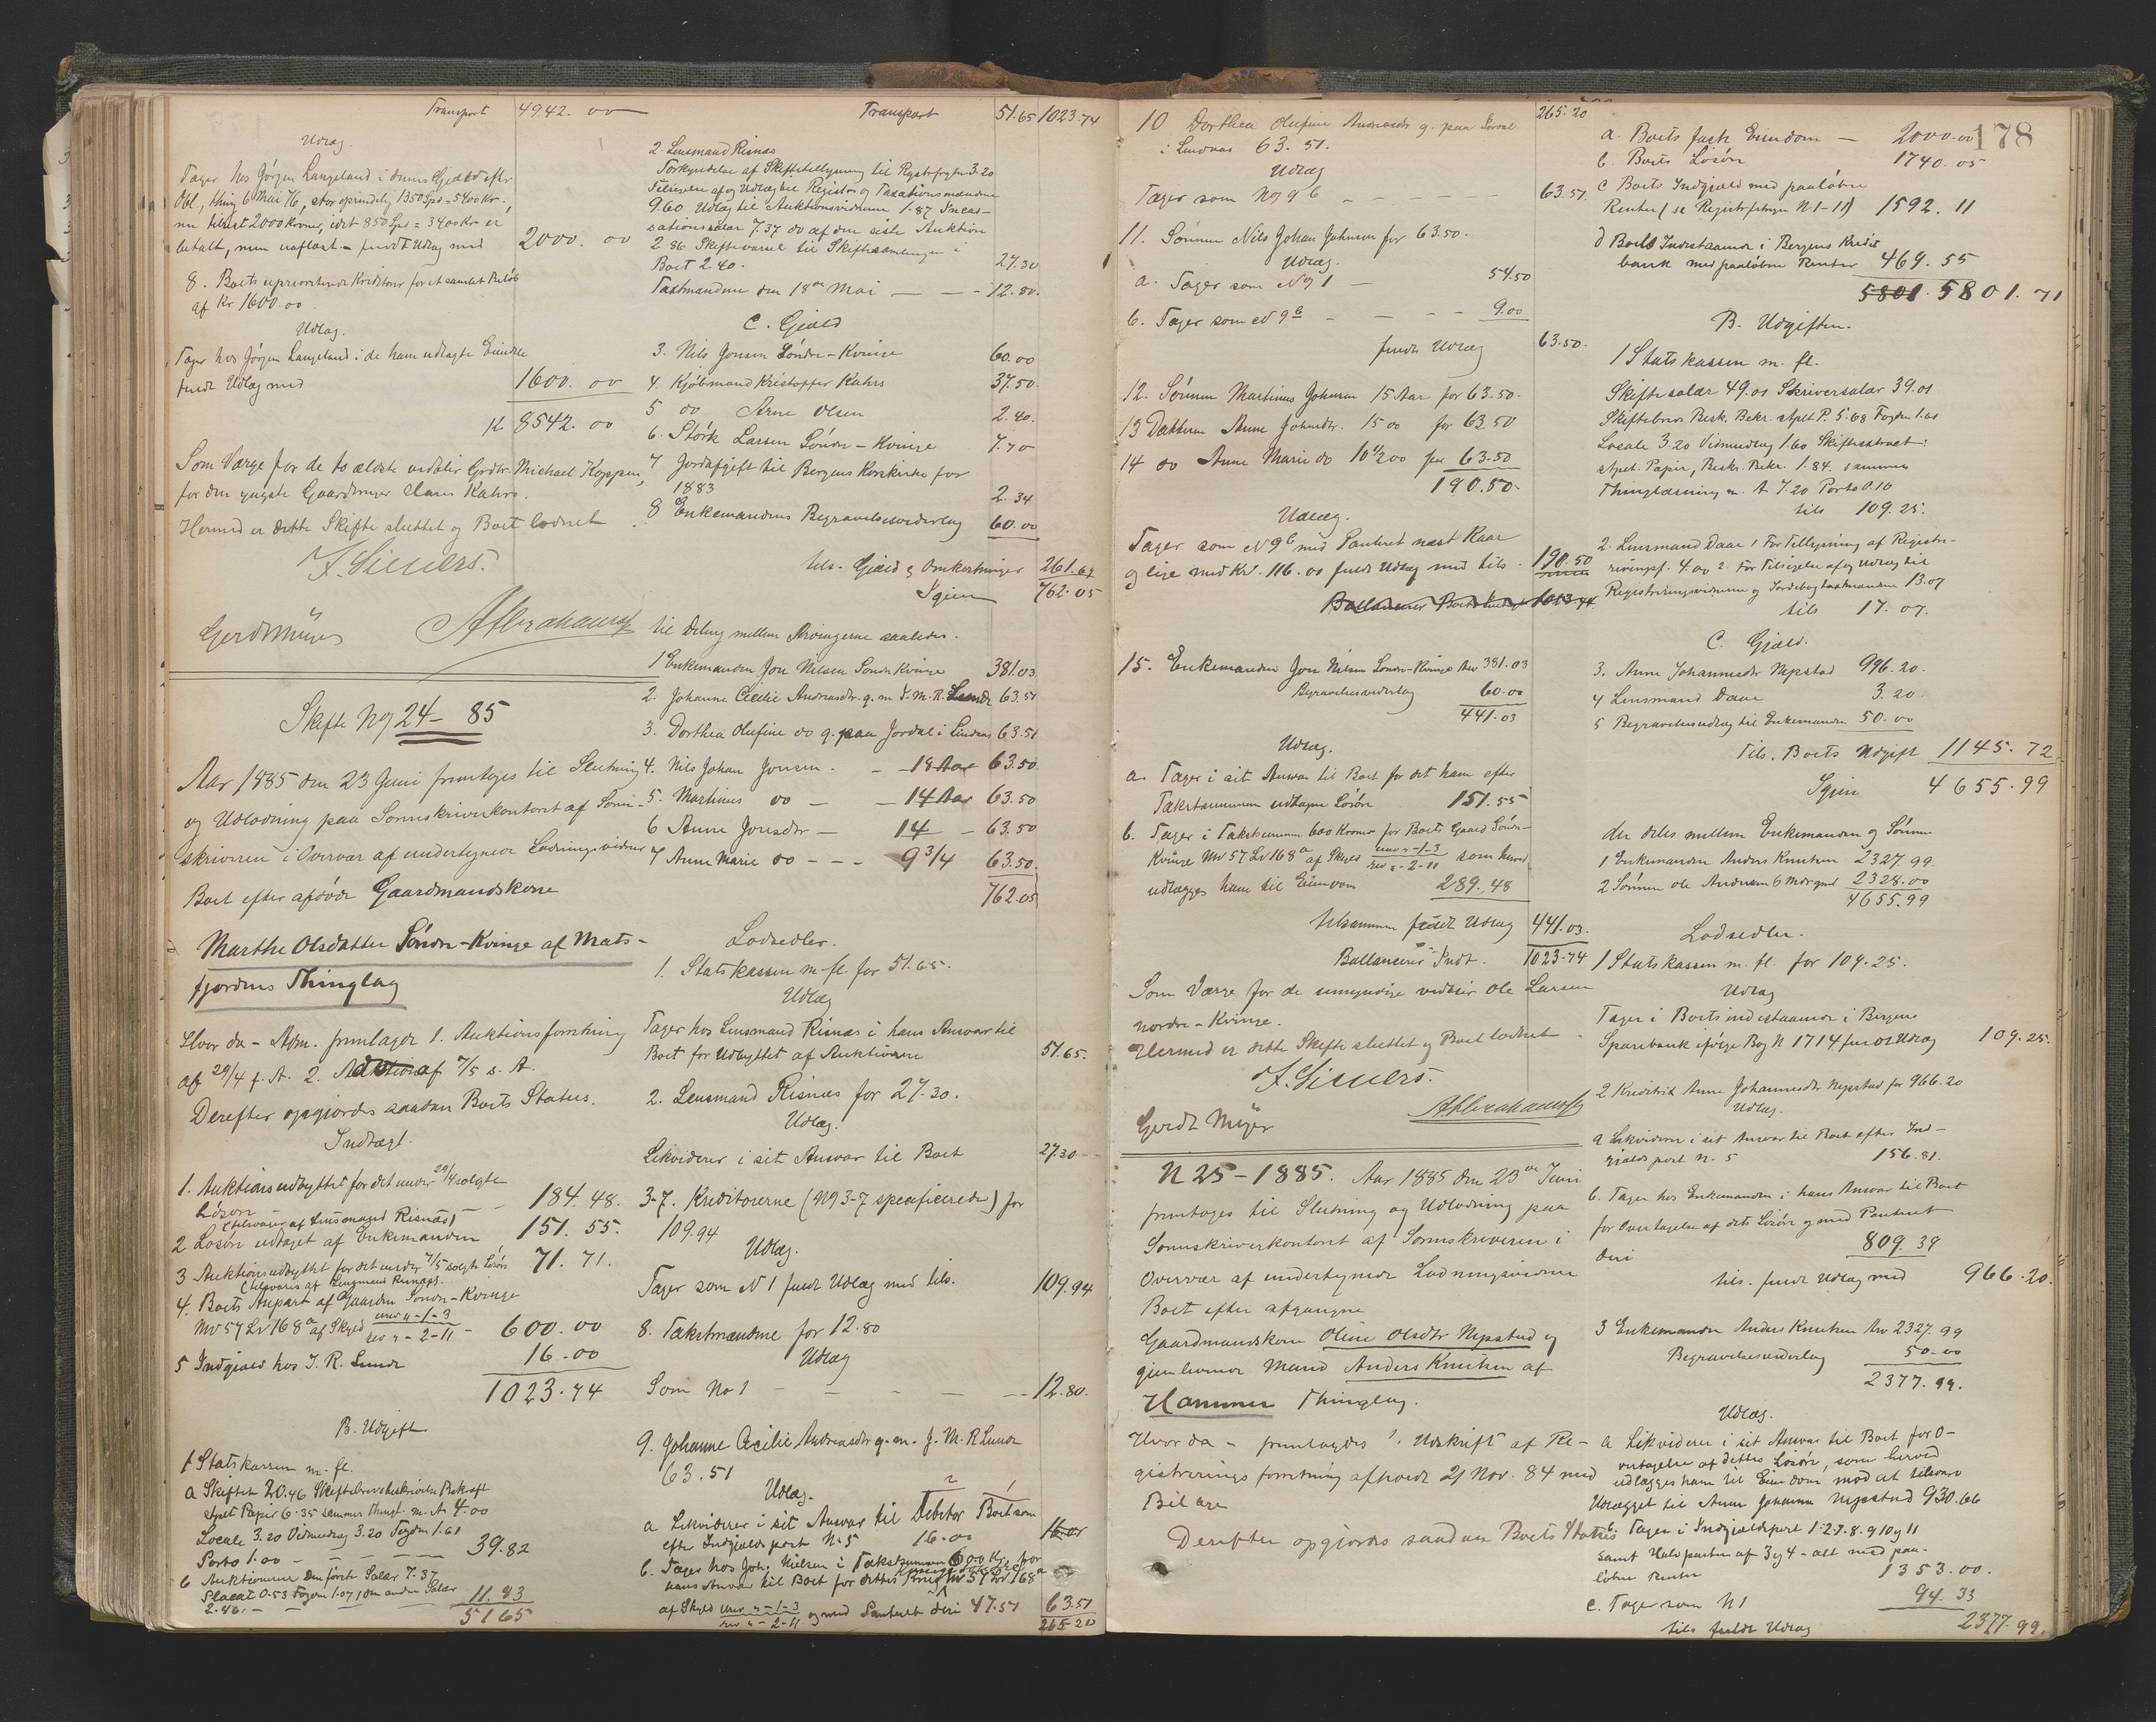 Transport 4942. 00
Udlæg.
Tager hos Jørgen Langeland i dennes Gjæld efter
Obl., thingl. 6 Mai 76, stor oprindelig 1350 Spd = 5400 Kr.,
nu tilrest 2000 Kroner, idet 850 Spd = 3400 Kr er
betalt, men uaflæst - fuldt Udlæg med 2000. 00
8. Boets uprioriterede Kreditorer for et samlet Beløb
af Kr 1600.00
Udlæg.
Tager hos Jørgen Langeland i de ham udlagte Eiendele
fuldt Udlæg med 1600. 00
Kr 8542. 00
Som Værge for de to ældste vedblir Grdbr. Michael Koppen,
for den yngste Gaardbruger Claus Kahrs.
Hermed er dette Skifte sluttet og Boet lodnet
F. Sievers.
Gerdt Meyer A. Abrahamsen
Skifte No 24 - 85
Aar 1885 den 23 Juni fremtoges til Slutning
og Udlodning paa Sorenskriverkontoret af Soren-
skriveren i Overvær af undertegnede Lodningsvidner
Boet efter afdøde Gaardmandskone
Marthe Olsdatter Søndre-Kvinge af Mats-
fjordens Thinglag
Hvor da - Adm. fremlagde 1. Auktionsforretning
af 29/4 f. A. 2. Auktion af 7/5 s. A.
Derefter opgjordes saadan Boets Status.
Indtægt.
1. Auktionsudbyttet for det under 29/4 solgte
Løsøre 184. 48.
(tilsvares af Lensmand Risnæs)
2 Løsøre udtaget af Enkemanden 151. 55.
3 Auktionsudbyttet for det under 7/5 solgte Løsøre 71. 71.
(tilsvares af Lensmand Risnæs)
4. Boets Anpart af Gaarden Søndre-Kvinge
Mn 57 Ln 168a af Skyld urev " - 1 - 3
rev " - 2 - 11 - 600. 00
5 Indgjæld hos J. R. Lunde 16. 00
1023. 74
B. Udgift
1 Statskassen m. fl.
a Skiftet 20.46 Skiftebrevs Beskrivelse Bekræft
stplet Papir 6.35 sammes Thingl. m. A 4.00
Locale 3.20 Vidneudlæg 3.20 Fogden 1.61
Porto 1.00 - 39.82
b Auktionerne Den første Salær 7.37
Placat 0.53 Fogden 1.07, den anden Salær
2.46. - 11.83
51 65
Transport 51.65 1023.74
2. Lensmand Risnæs
Forkyndelse af Skiftetillysning til Rgstr.frgtn 3.20
Tilsigelse af og Udlæg til Registr og Taxationsmændene
9.60 Udlæg til Auktionsvidnerne 1.87 Incas-
sationssalær 7.37 do af den siste Auktion
2.86 Skiftevarsel til Skiftesamlingen i
Boet 2.40. 27.30
Taxtmændene den 18de Mai - 12.80.
C. Gjæld
3. Nils Jonsen Søndre-Kvinge 60.00
4. Kjøbmand Kristoffer Kahrs 37.50.
5 do Arne Olsen 2.40.
6. Størk Larsen Søndre-Kvinge 7.70
7 Jordafgift til Bergens Korskirke for
1883 2.34
8 Enkemandens Begravelsesvederlag 60.00
tils. Gjæld & Omkostninger 261.69
Igjen 762.05
til Deling mellem Arvingerne saaledes.
1 Enkemanden Jon Nilsen Søndre Kvinge 381.03
2. Johanne Cecilie Andreasdr. g. m. J. M. R. Lunde 63.51
3. Dorthea Olufine do g. paa Jordal i Lindaas 63.51
4. Nils Johan Jonsen. - 18 Aar 63.50
5. Martinus do - 14 Aar 63.50
6 Anne Jonsdtr - 14 - 63.50
7 Anne Marie do - - - 9 3/4 63.50.
762.05
Lodsedler.
1. Statskassen m. fl. for 51.65.
Udlæg
Tager hos Lensmand Risnæs i hans Ansvar til
Boet for Udbyttet af Auktionerne 51.65.
2. Lensmand Risnæs for 27.30.
Udlæg.
Likviderer i sit Ansvar til Boet 27.30
3-7. Kreditorerne (No 3-7 specificerede) for
109.94
Udlæg.
Tager som N 1 fuldt Udlæg med tils. 109.94
8. Takstmændene for 12.80
Udlæg
Som No 1 - 12.80.
9. Johanne Cecilie Andreasdtr g. m. J. M. R Lunde
63.51
Udlæg.
a Likviderer i sit Ansvar til Debitor Boet som
efter Indgjælds post N. 5 16.00
b. Tager hos Joh. Nielsen i Takstsummen 600 Kr, for
hans Ansvar til Boet for dettes Mn 57 Ln 168a
af Skyld urev " - 1 - 3
rev " - 2 - 11 og med Panteret deri 47.51 63.51
265 20
265.20
10 Dorthea Olufine Andreasdtr g. paa Jordal
i Lindaas 63. 51.
Udlæg
Tager som No 9 b 63.51.
11. Sønnen Nils Johan Johnsen for 63.50.
Udlæg.
a. Tager som No 1 - 54.50
b. Tager som N 9 b - 9.00
fuldt Udlæg 63.50.
12. Sønnen Martinus Johnsen 15 Aar for 63.50.
13 Datteren Anne Johnsdtr. 15 do for 63.50
14 do Anne Marie do 10 1/2 do for 63.50
190.50.
Udlæg.
Tager som N 9 b med Panteret næst Kaar
og lige med Kr. 116.00 fuldt Udlæg med tils. 190.50
Ballancerer Boets Indtægt 1023.74
15. Enkemanden Jon Nilsen Søndre-Kvinge Arv 381.03
Begravelsesvederlag 60.00
441.03
Udlæg.
a. Tager i sit Ansvar til Boet for det ham efter
Takstsummen udtagne Løsøre 151.55
b. Tager i Takstsummen 600 Kroner for Boets Gaard Søndre-
Kvinge Mn 57 Ln 168a af Skyld urev " - 1 - 3
rev " - 2 - 11 som herved
udlægges ham til Eiendom 289.48
tilsammen fuldt Udlæg 441.03.
Ballancerer Indt. 1023.74
Som Værge for de umyndige vedblir Ole Larsen
Nordre-Kvinge.
Hermed er dette Skifte sluttet og Boet lodnet
F. Sievers.
Gerdt Meyer A. Abrahamsen
N 25 - 1885. Aar 1885 den 23de Juni
fremtoges til Slutning og Udlodning paa
Sorenskriverkontoret af Sorenskriveren i
Overvær af undertegnede Lodningsvidner
Boet efter afgangne
Gaardmandskone Oline Olsdtr Mepstad og
gjenlevende Mand Anders Knutsen af
Hammer Thinglag.
Hvor da - fremlagdes 1. Udskrift af Re-
gistreringsforretning afholdt 21 Nov. 84 med
Bilage
Derefter opgjordes saadan Boets Status
178
a. Boets faste Eiendom - 2000.00
b. Boets Løsøre 1740. 05
c Boets Indgjæld med paaløbne
Renter (se Registr.frtngn N 1-11) 1592. 11
d Boets Indestaaende i Bergens Kredit
bank med paaløbne Renter 469. 55
5801. 5801. 71
B. Udgiften.
1 Statskassen m. fl.
Skiftesalær 49.01 Skriversalær 39.01
Skiftebrev Besk. Bekr. stplt P. 5.68 Fogden 1.61
Locale 3.20 Vidneudlæg 1.60 Skifteextract:
stplet. Papir, Besk. Bekr. 1.84. sammes
Thinglæsning m. A 7.20 Porto 0.10
tils 109.25.
2. Lensmand Daae 1 For Tillysning af Registre-
ringsf. 4.00 2. For Tilsigelse af og Udlæg til
Registreringsvidnerne og Jordebogtaxtmændene 13.07
tils 17.07.
C. Gjæld.
3. Anne Johannesdtr Mepstad 996.20.
4 Lensmand Daae 3.20.
5 Begravelsesudlæg til Enkemanden 50.00
Tils. Boets Udgift 1145. 72
Igjen 4655.99
der deles mellem Enkemanden og Sønnen
1 Enkemanden Anders Knutsen 2327.99.
2 Sønnen Ole Andersen 6 Mdr gml 2328.00
4655.99
Lodsedler.
1 Statskassen m. fl. for 109.25.
Udlæg
Tager i Boets indestaaende i Bergens
Sparebank ifølge Bog N 1714 fuldt Udlæg 109.25.
2 Kreditrix Anne Johannesdtr Mepstad for 966.20
Udlæg.
a Likviderer i sit Ansvar til Boet efter Ind-
gjælds post N. 5 156.81.
b. Tager hos Enkemanden i hans Ansvar til Boet
for Overtagelse af dets Løsøre og med Panteret
deri 809. 39
tils. fuldt Udlæg med 966.20.
3 Enkemanden Anders Knutsen Arv 2327.99
Begravelsesvederlag 50.00
2377.99.
Udlæg.
a Likviderer i sit Ansvar til Boet for O-
vertagelse af dettes Løsøre, som herved
udlægges ham til Eiendom mod at tilsvare
Udlægget til Anne Johanne Mepstad 930.66
b Tager i Indgjældspost 1. 2. 7. 8. 9 10 og 11
samt Halvparten af 3 og 4 - alt med paa-
løbne Renter 1353.00.
c. Tager som N 1 94. 33
tils fuldt Udlæg 2377.99.